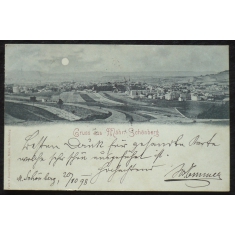 Gruss aus Mähr. Schönberg
Besten Dank für gesandte Karte
welche sehr schön ausgeführt ist.
Hochachtend
M. Schönberg 20/10 98